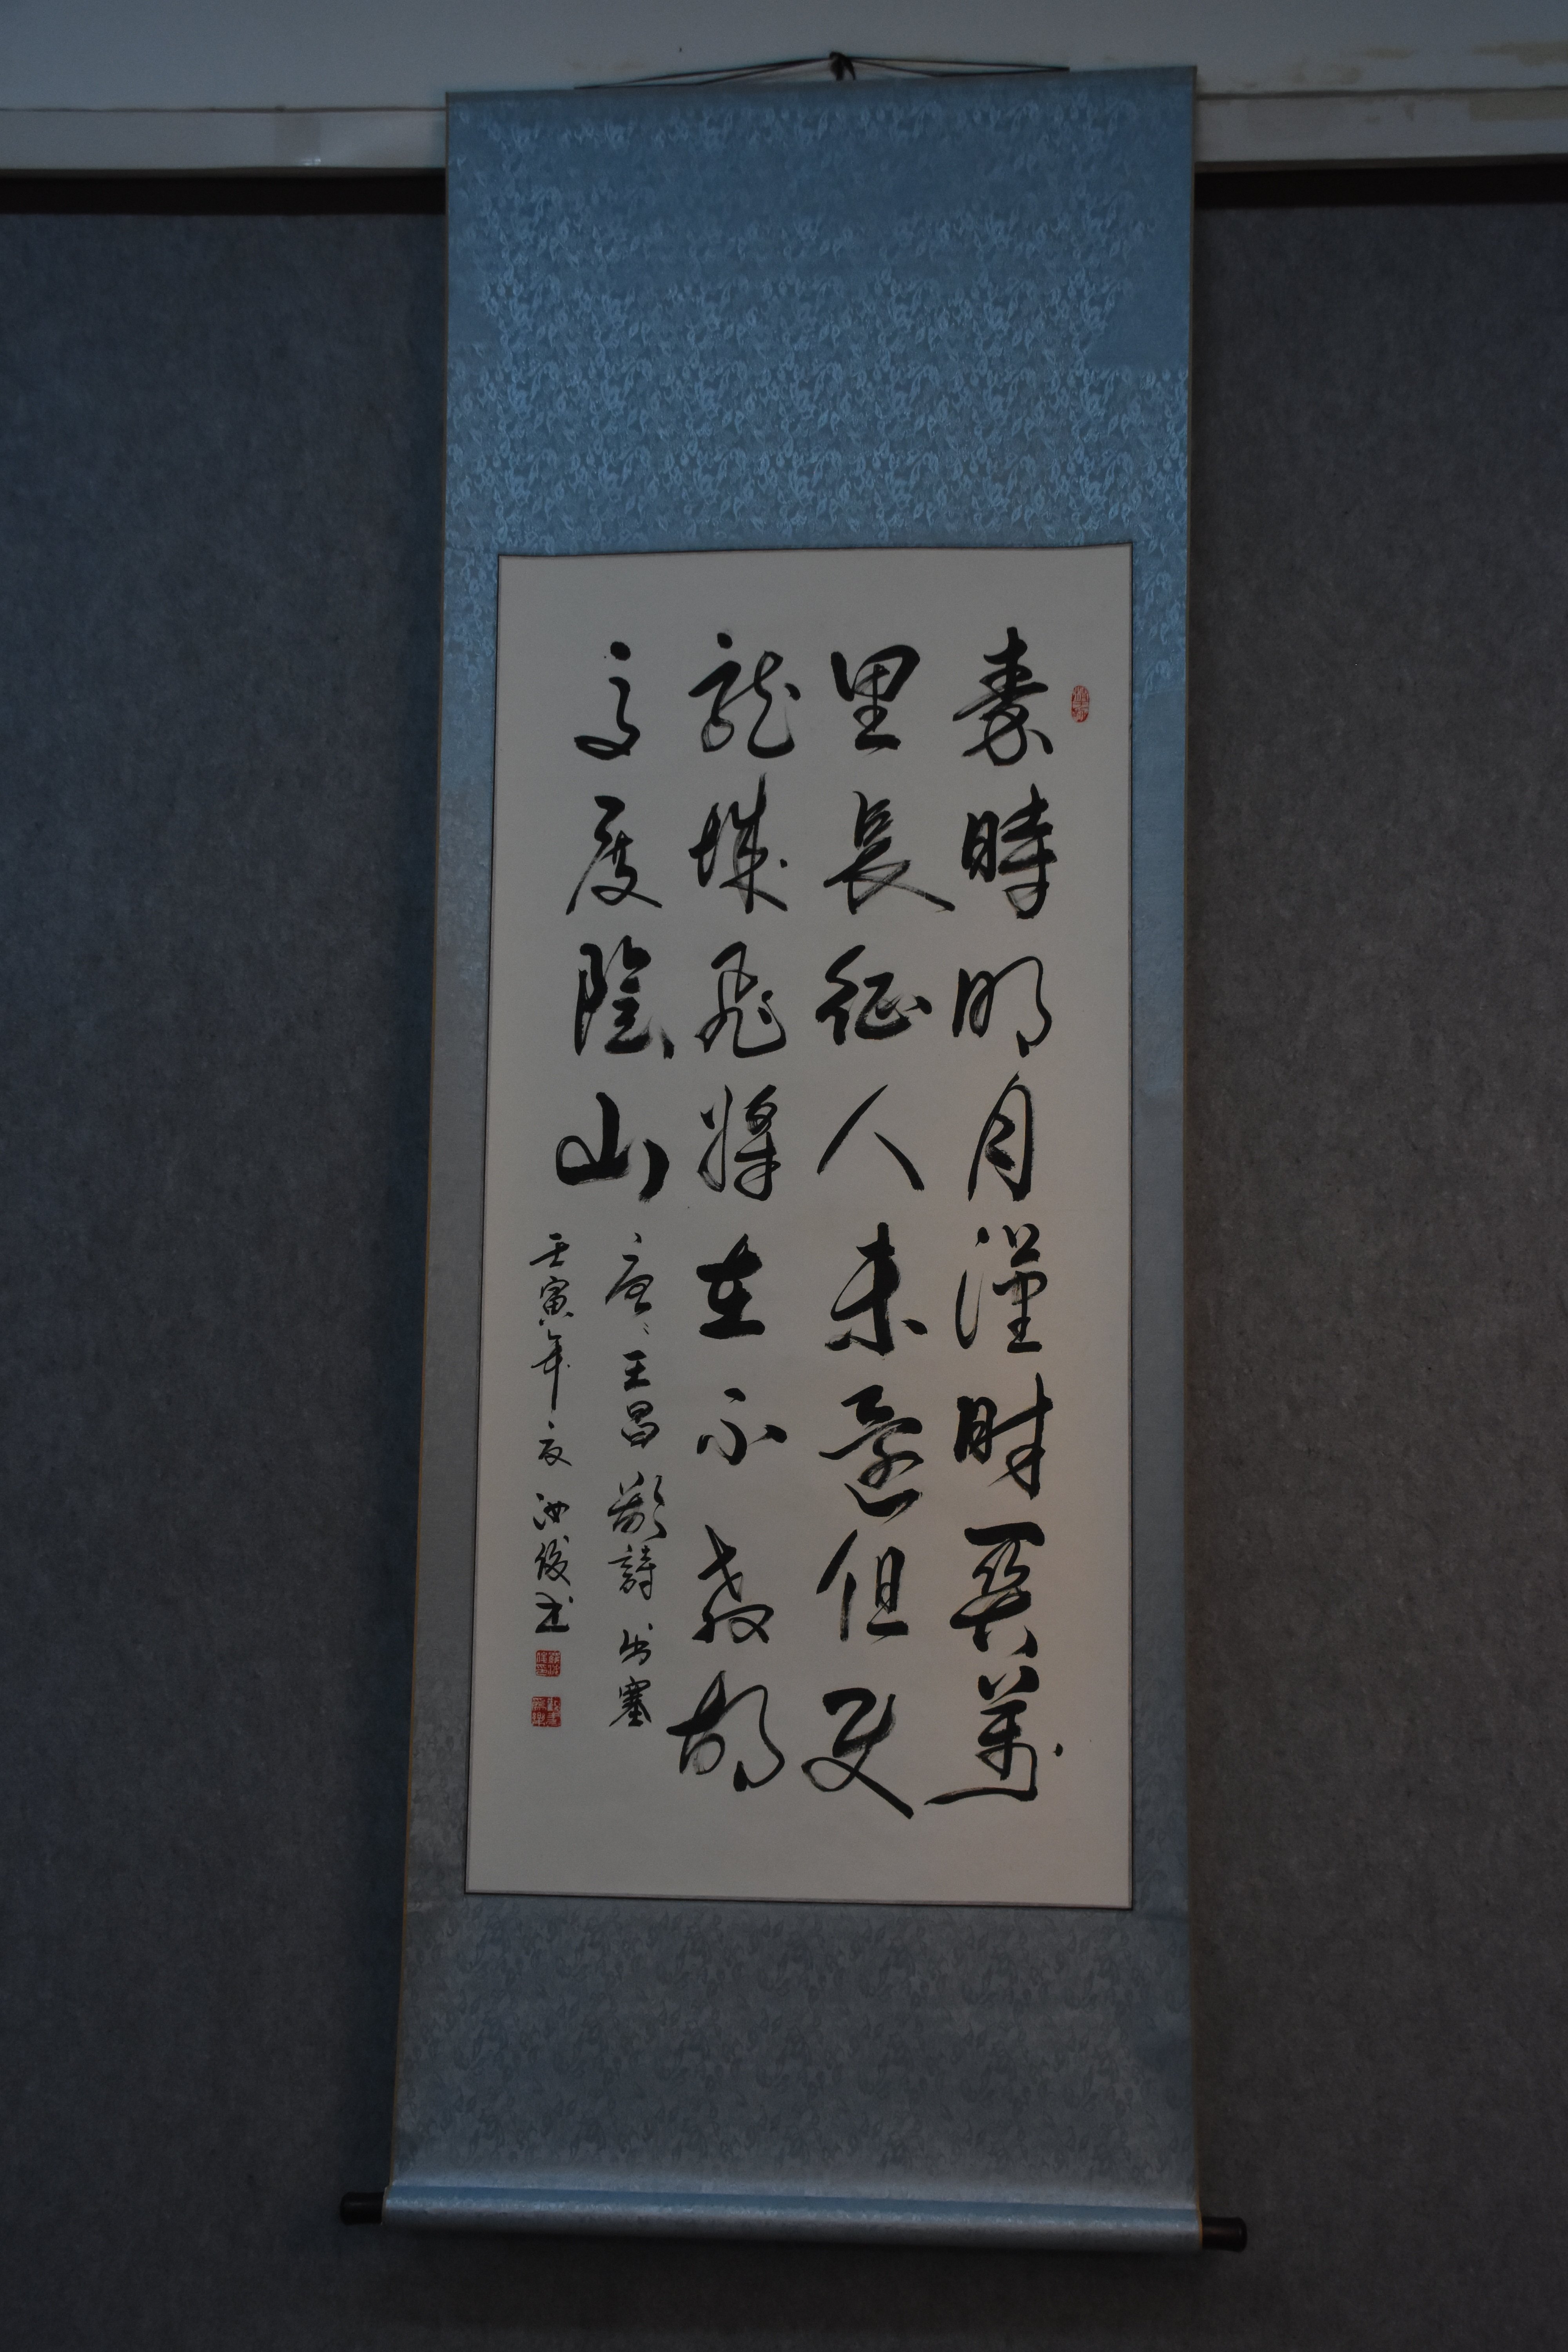 秦時明月漢時關萬
里長征人未還但使
龍城飛將在不教胡
馬度陰山
唐、王昌齡詩出塞
壬寅年夏 俊书